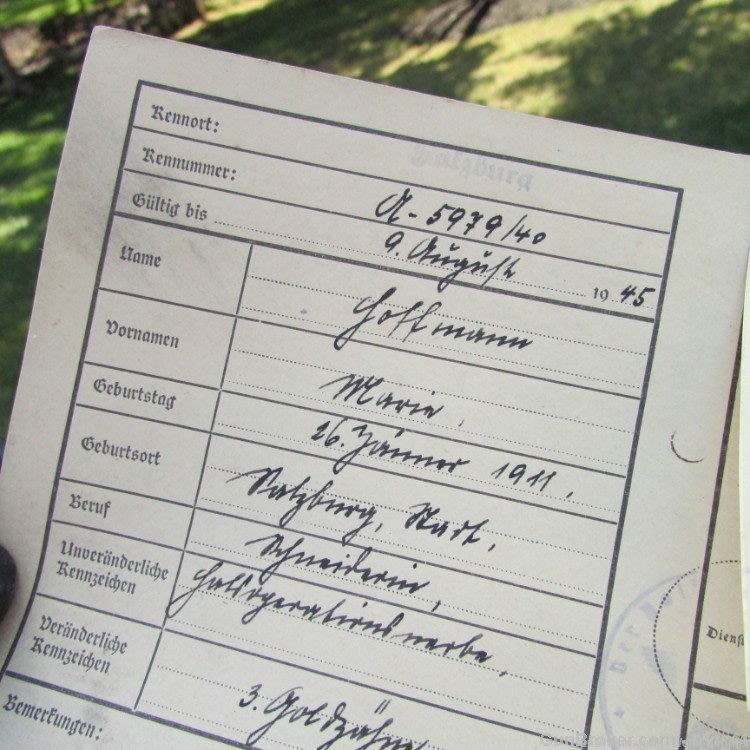 Kennort: Salzburg
Kennummer: A-5979/40
Gültig bis 9. August 1945
Name Hoffmann
Vornamen Marie,
Geburtstag 26. Jänner 1911,
Geburtsort Salzburg, Stadt,
Beruf Schneiderin,
Unveränderliche Kennzeichen Halsoperationsnarbe,
Veränderliche Kennzeichen 3. Goldzähne
Bemerkungen:
Der Poli
Dienst
GunBroker.com